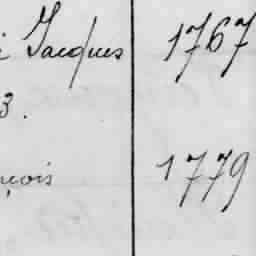 Jacques 1767
3.
çois 1779